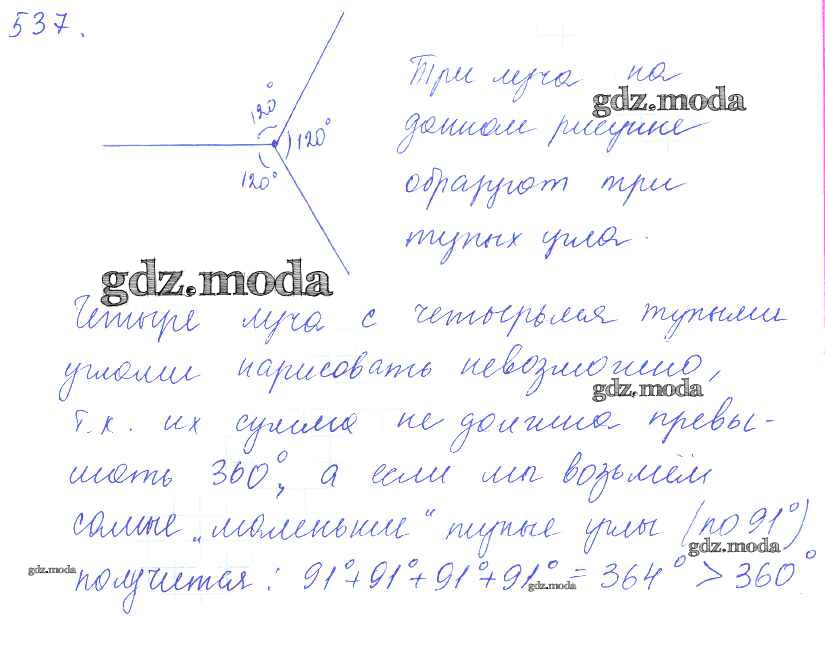 537.
120°
120°
120°
Три луча на
gdz.moda
данном рисунке
образуют три
тупых угла.
gdz.moda
Четыре луча с четырьмя тупыми
углами нарисовать невозможно,
gdz.moda
т.к. их сумма не должна превы-
шать 360°, а если мы возьмём
самые „маленькие“ тупые углы (по 91°)
gdz.moda
gdz.moda
получится: 91°+91°+91°+91°=364°>360°
gdz.moda